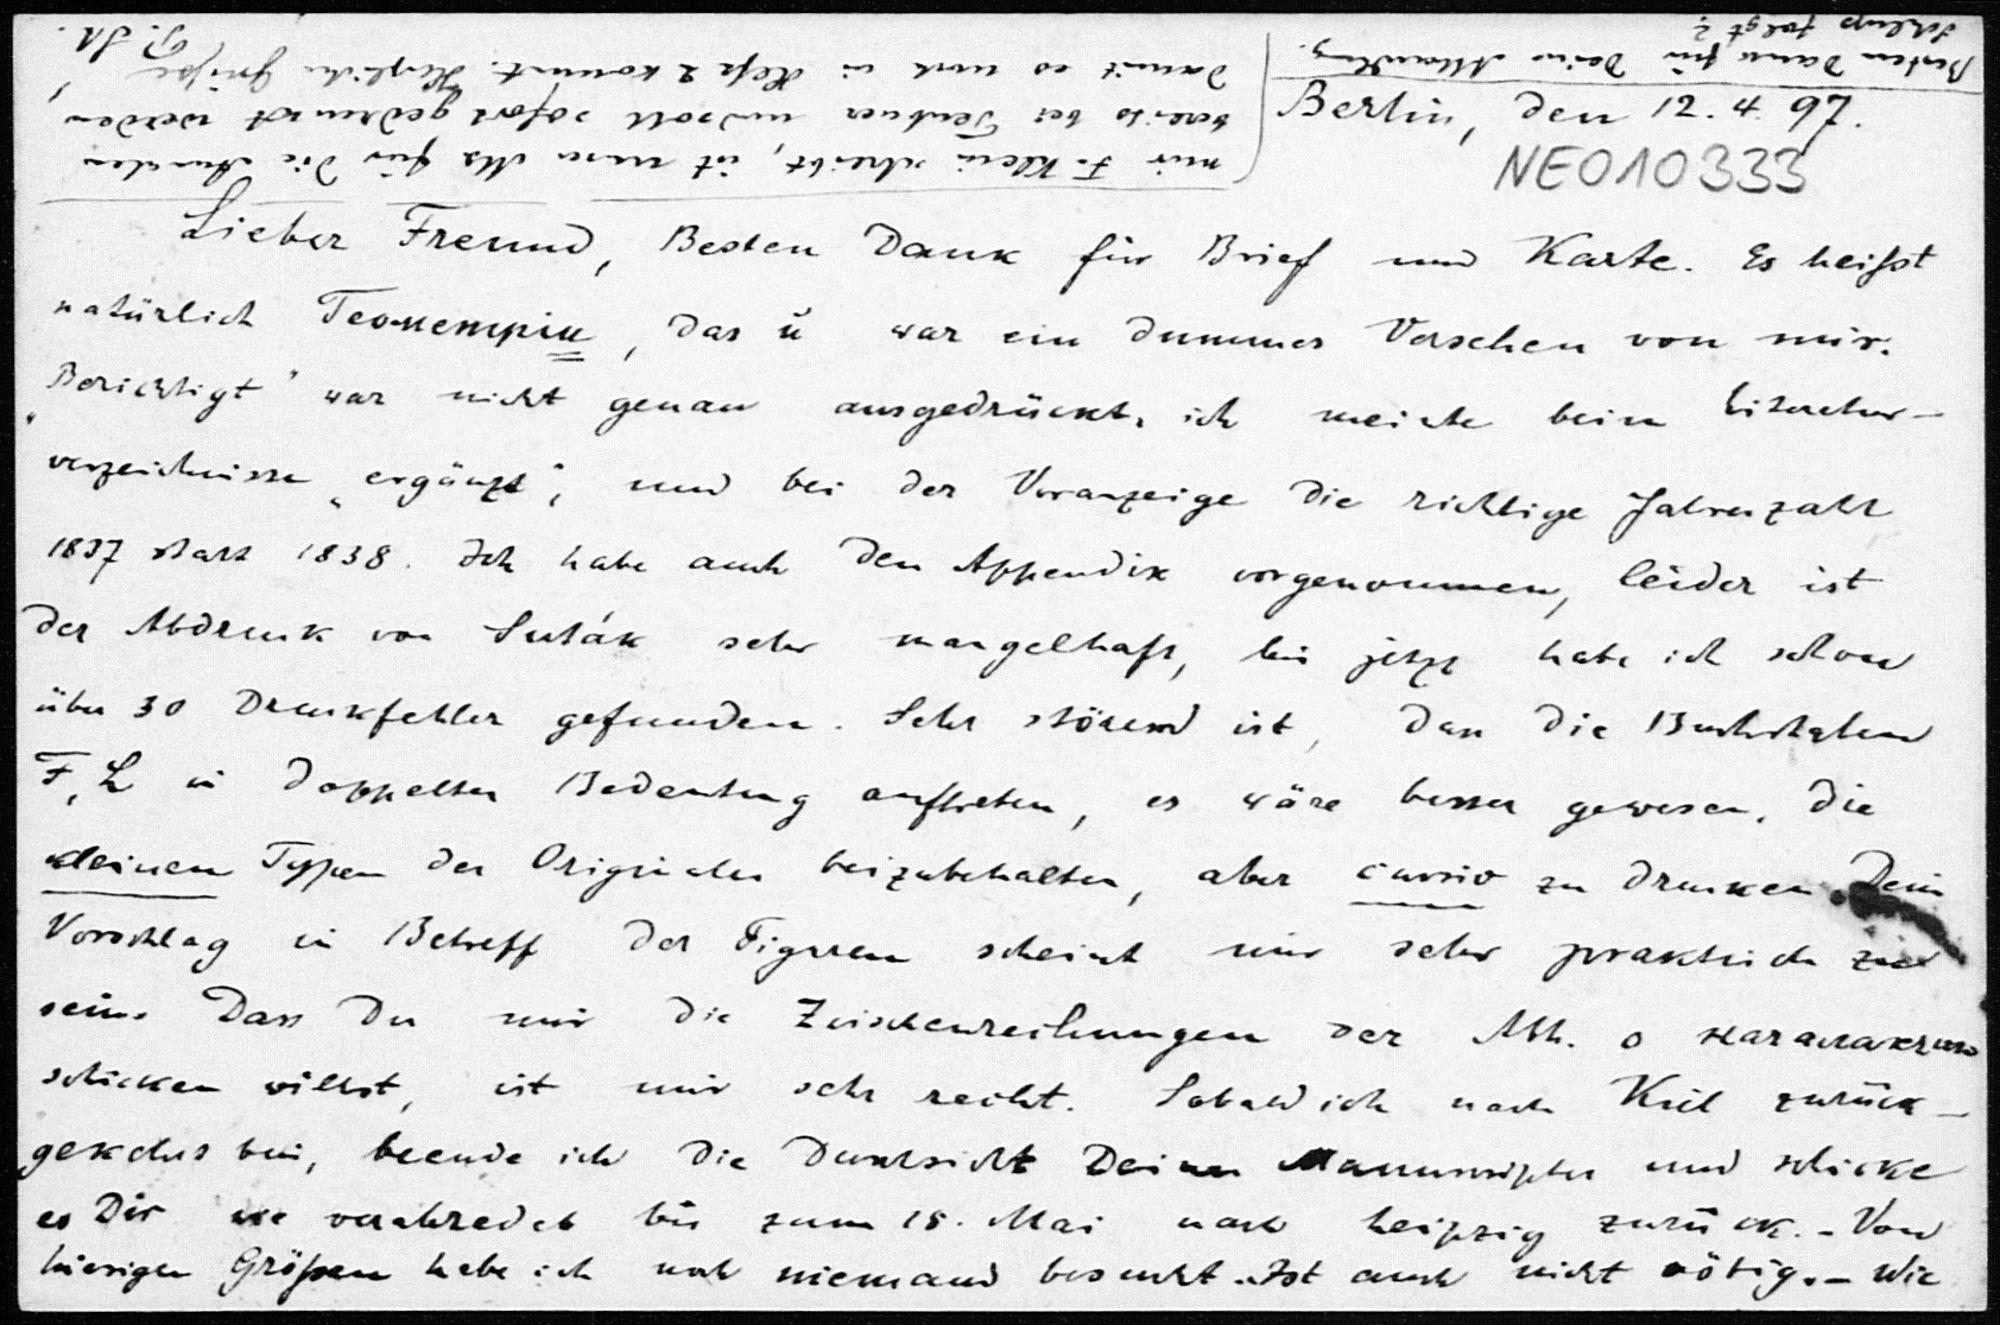 Berlin, den 12. 4. 97.
NEO10333
Lieber Freund, Besten Dank für Brief und Karte. Es heißt
natürlich Геометріи, das ü war ein dummes Versehen von mir.
„Berichtigt" war nicht genau ausgedrückt, ich meinte beim Literatur-
verzeichnisse „ergänzt", und bei der Voranzeige die richtige Jahreszahl
1837 statt 1838. Ich habe auch den Appendix vorgenommen, leider ist
der Abdruck von Suták sehr mangelhaft, bis jetzt habe ich schon
über 30 Druckfehler gefunden. Sehr störend ist, dass die Buchstaben
F, L in doppelter Bedeutung auftreten, es wäre besser gewesen, die
kleinen Typen des Originales beizubehalten, aber cursiv zu drucken. Dein
Vorschlag in Betreff der Figuren scheint mir sehr praktisch zu
sein. Dass Du mir die Zwischenreihungen der Abh. о началахъ
schicken willst, ist mir sehr recht. Sobald ich nach Kiel zurück-
gekehrt bin, beende ich die Durchsicht Deines Manuscriptes und schicke
es Dir wie verabredet bis zum 15. Mai nach Leipzig zurück. - Von
hiesigen Größen habe ich noch niemand besucht. Ist auch nicht nötig. - Wie
mir F. Klein schreibt, ist unser Ms für die Annalen
bereits bei Teubner und soll sofort gedruckt werden
damit es noch in Heft 2 kommt. Herzliche Grüße,
P. St.
Besten Dank für Deine Abhandlung.
Schluss folgt?